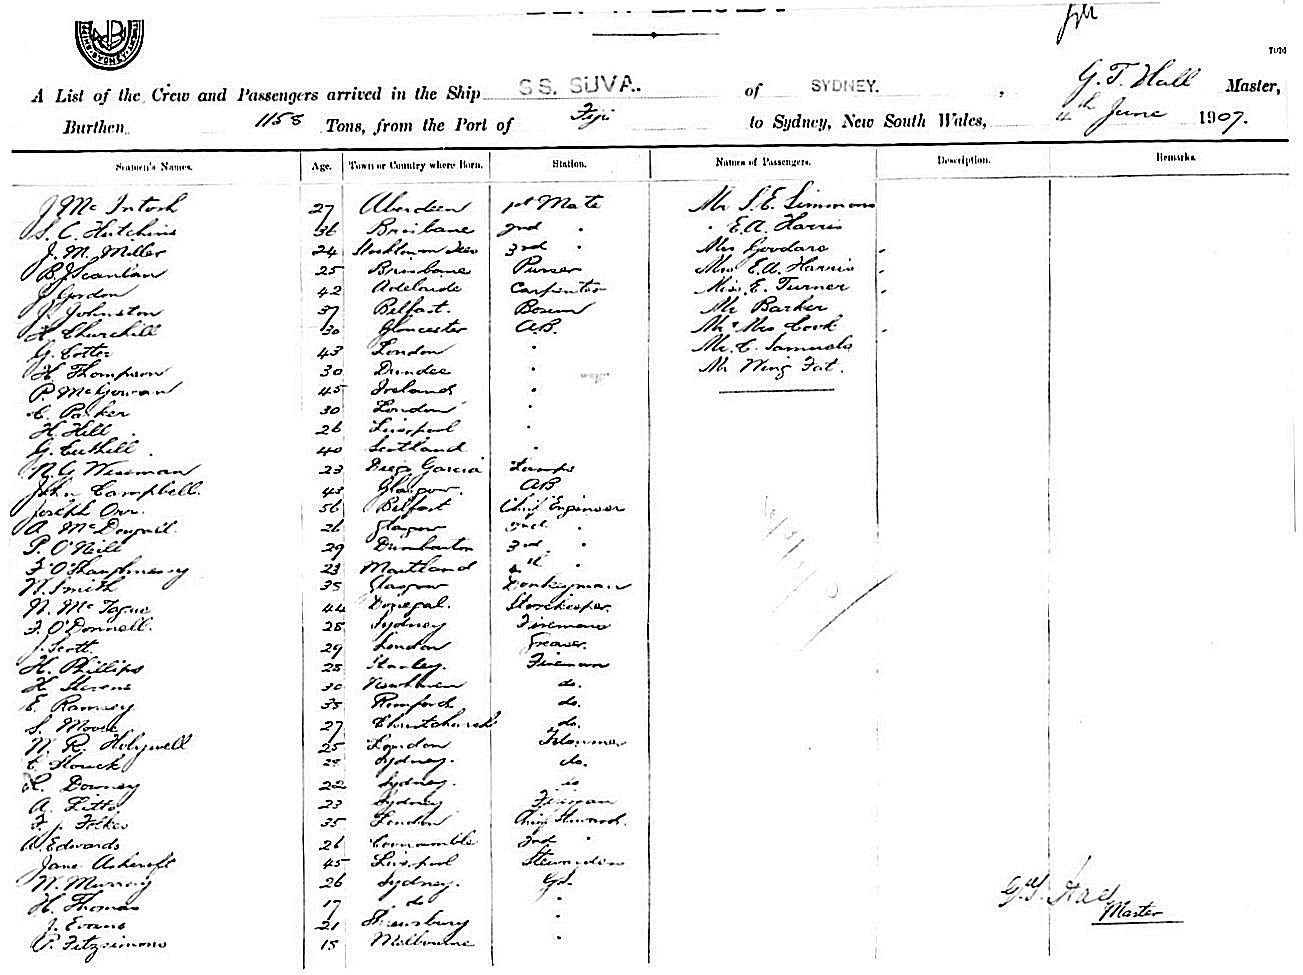 A List of the Crew and Passengers arrived in the Ship SS. SUVA. of SYDNEY. , G. T. Hall Master,
Burthen 1158 Tons, from the Port of Fiji to Sydney, New South Wales, 4th June 1907.
Seamen's Names. Age. Town or Country where Born. Station. Names of Passengers. Description. Remarks.
J Mc Intosh 27 Aberdeen 1st Mate Mr S. E. Simmons
S. C. Hutchins 36 Brisbane 2nd " " E. A. Harris
J. M. Miller 24 Stockton on Tees 3rd " Mrs Goodare
B. J. Scanlan 25 Brisbane Purser Mrs E. A. Harris
J. Gordon 42 Adelaide Carpenter Miss E. Turner
J. Johnston 37 Belfast. Bosun Mr Barker
Churchill 30 Gloucester AB. Mr & Mrs Cook
G. Cotter 43 London " Mr C. Samuels
H. Thompson 30 Dundee " Mr Wing Fat.
P. McGowan 45 Ireland "
C. Parker 30 London "
H. Hill 26 Liverpool "
G. 40 Scotland "
R. G. Wiseman 23 Diego Garcia Lamps
John Campbell. 43 Glasgow. AB
Joseph Orr. 56 Belfast Chief Engineer
A. McDougall 26 Glasgow 2nd "
P. O'Neill 29 Dumbarton 3rd "
F. O'Shaughnessy 23 Maitland 4th "
W. Smith 35 Glasgow Donkeyman
N. McTague 44 Donegal. Storekeeper
F. O'Donnell. 28 Sydney Fireman
J. Scott. 29 London Greaser.
H. Phillips 28 Stanley. Fireman
H. Stevens 30 Newhaven do.
E. Ramsey 35 Romford do.
S. Moore 27 Christchurch do.
W. R. Holywell 25 London Trimmer
Sydney. do.
Downey 22 Sydney. do
A. 23 Sydney Fireman
F. J. 35 London Chief Steward.
A. Edwards 26 Coonamble 2nd "
Jane Ashcroft 45 Liverpool Stewardess
W. Murray 26 Sydney. G.S.
H. Thomas 17 do "
J. Evans 21 Shrewsbury "
P. Fitzsimons 18 Melbourne "
Master